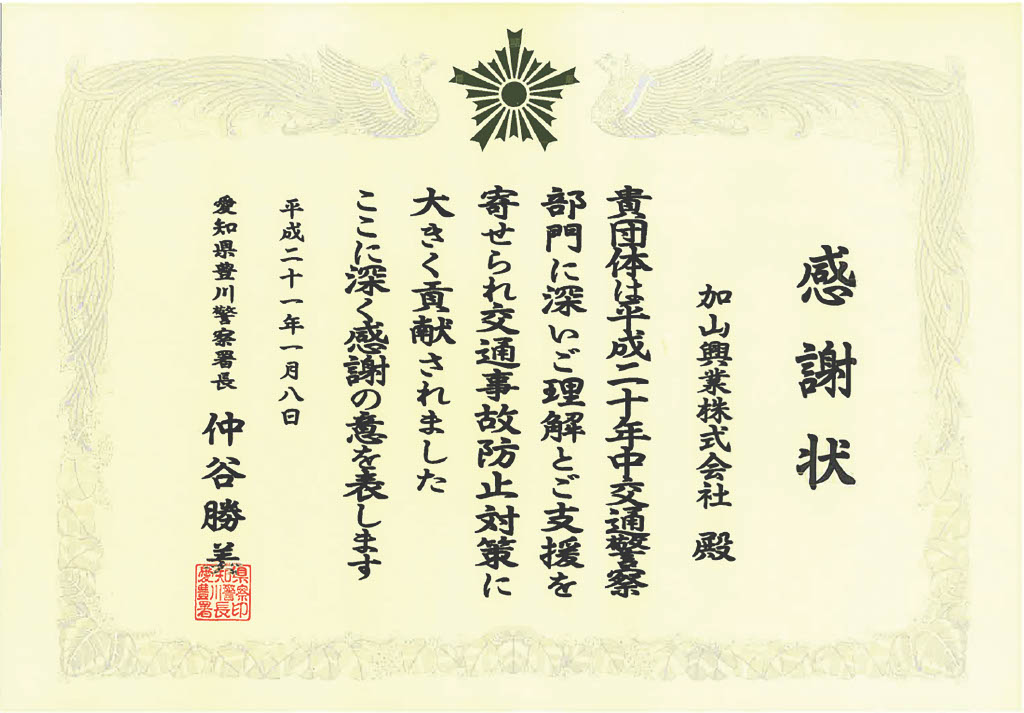 感謝状
加山興業株式会社 殿
貴団体は平成二十年中交通警察
部門に深いご理解とご支援を
寄せられ交通事故防止対策に
大きく貢献されました
ここに深く感謝の意を表します
平成二十一年一月八日
愛知県豊川警察署長 仲谷勝美
県察印
知川警長
愛豊署